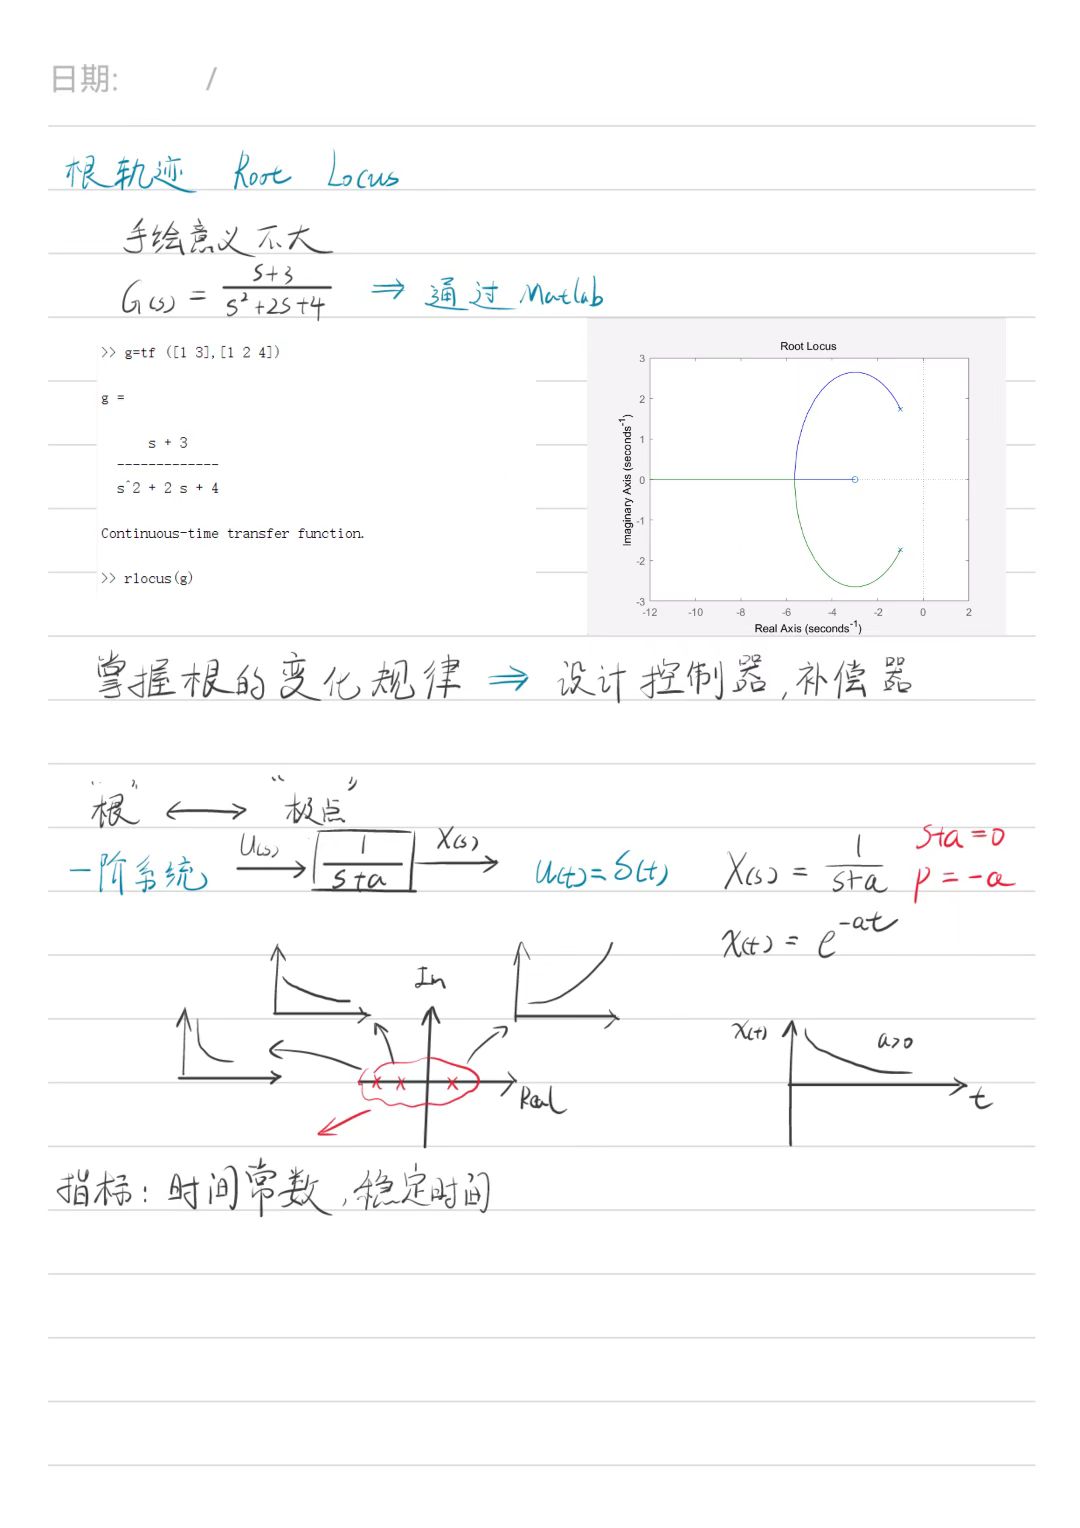 日期: /
根轨迹 Root Locus
手绘意义不大
G(s) = s+3 / s²+2s+4 ⇒ 通过 Matlab
>> g=tf ([1 3],[1 2 4])
g =
s + 3
-------------
s^2 + 2 s + 4
Continuous-time transfer function.
>> rlocus(g)
Root Locus
Imaginary Axis (seconds⁻¹)
3
2
1
0
-1
-2
-3
-12 -10 -8 -6 -4 -2 0 2
Real Axis (seconds⁻¹)
掌握根的变化规律 ⇒ 设计控制器,补偿器
“根” ⟷ “极点”
一阶系统 U(s) → 1 / s+a X(s) → u(t)=δ(t) X(s) = 1 / s+a
s+a=0
p=-a
x(t) = e^-at
In
Real
x(t) a>0
t
指标: 时间常数,稳定时间